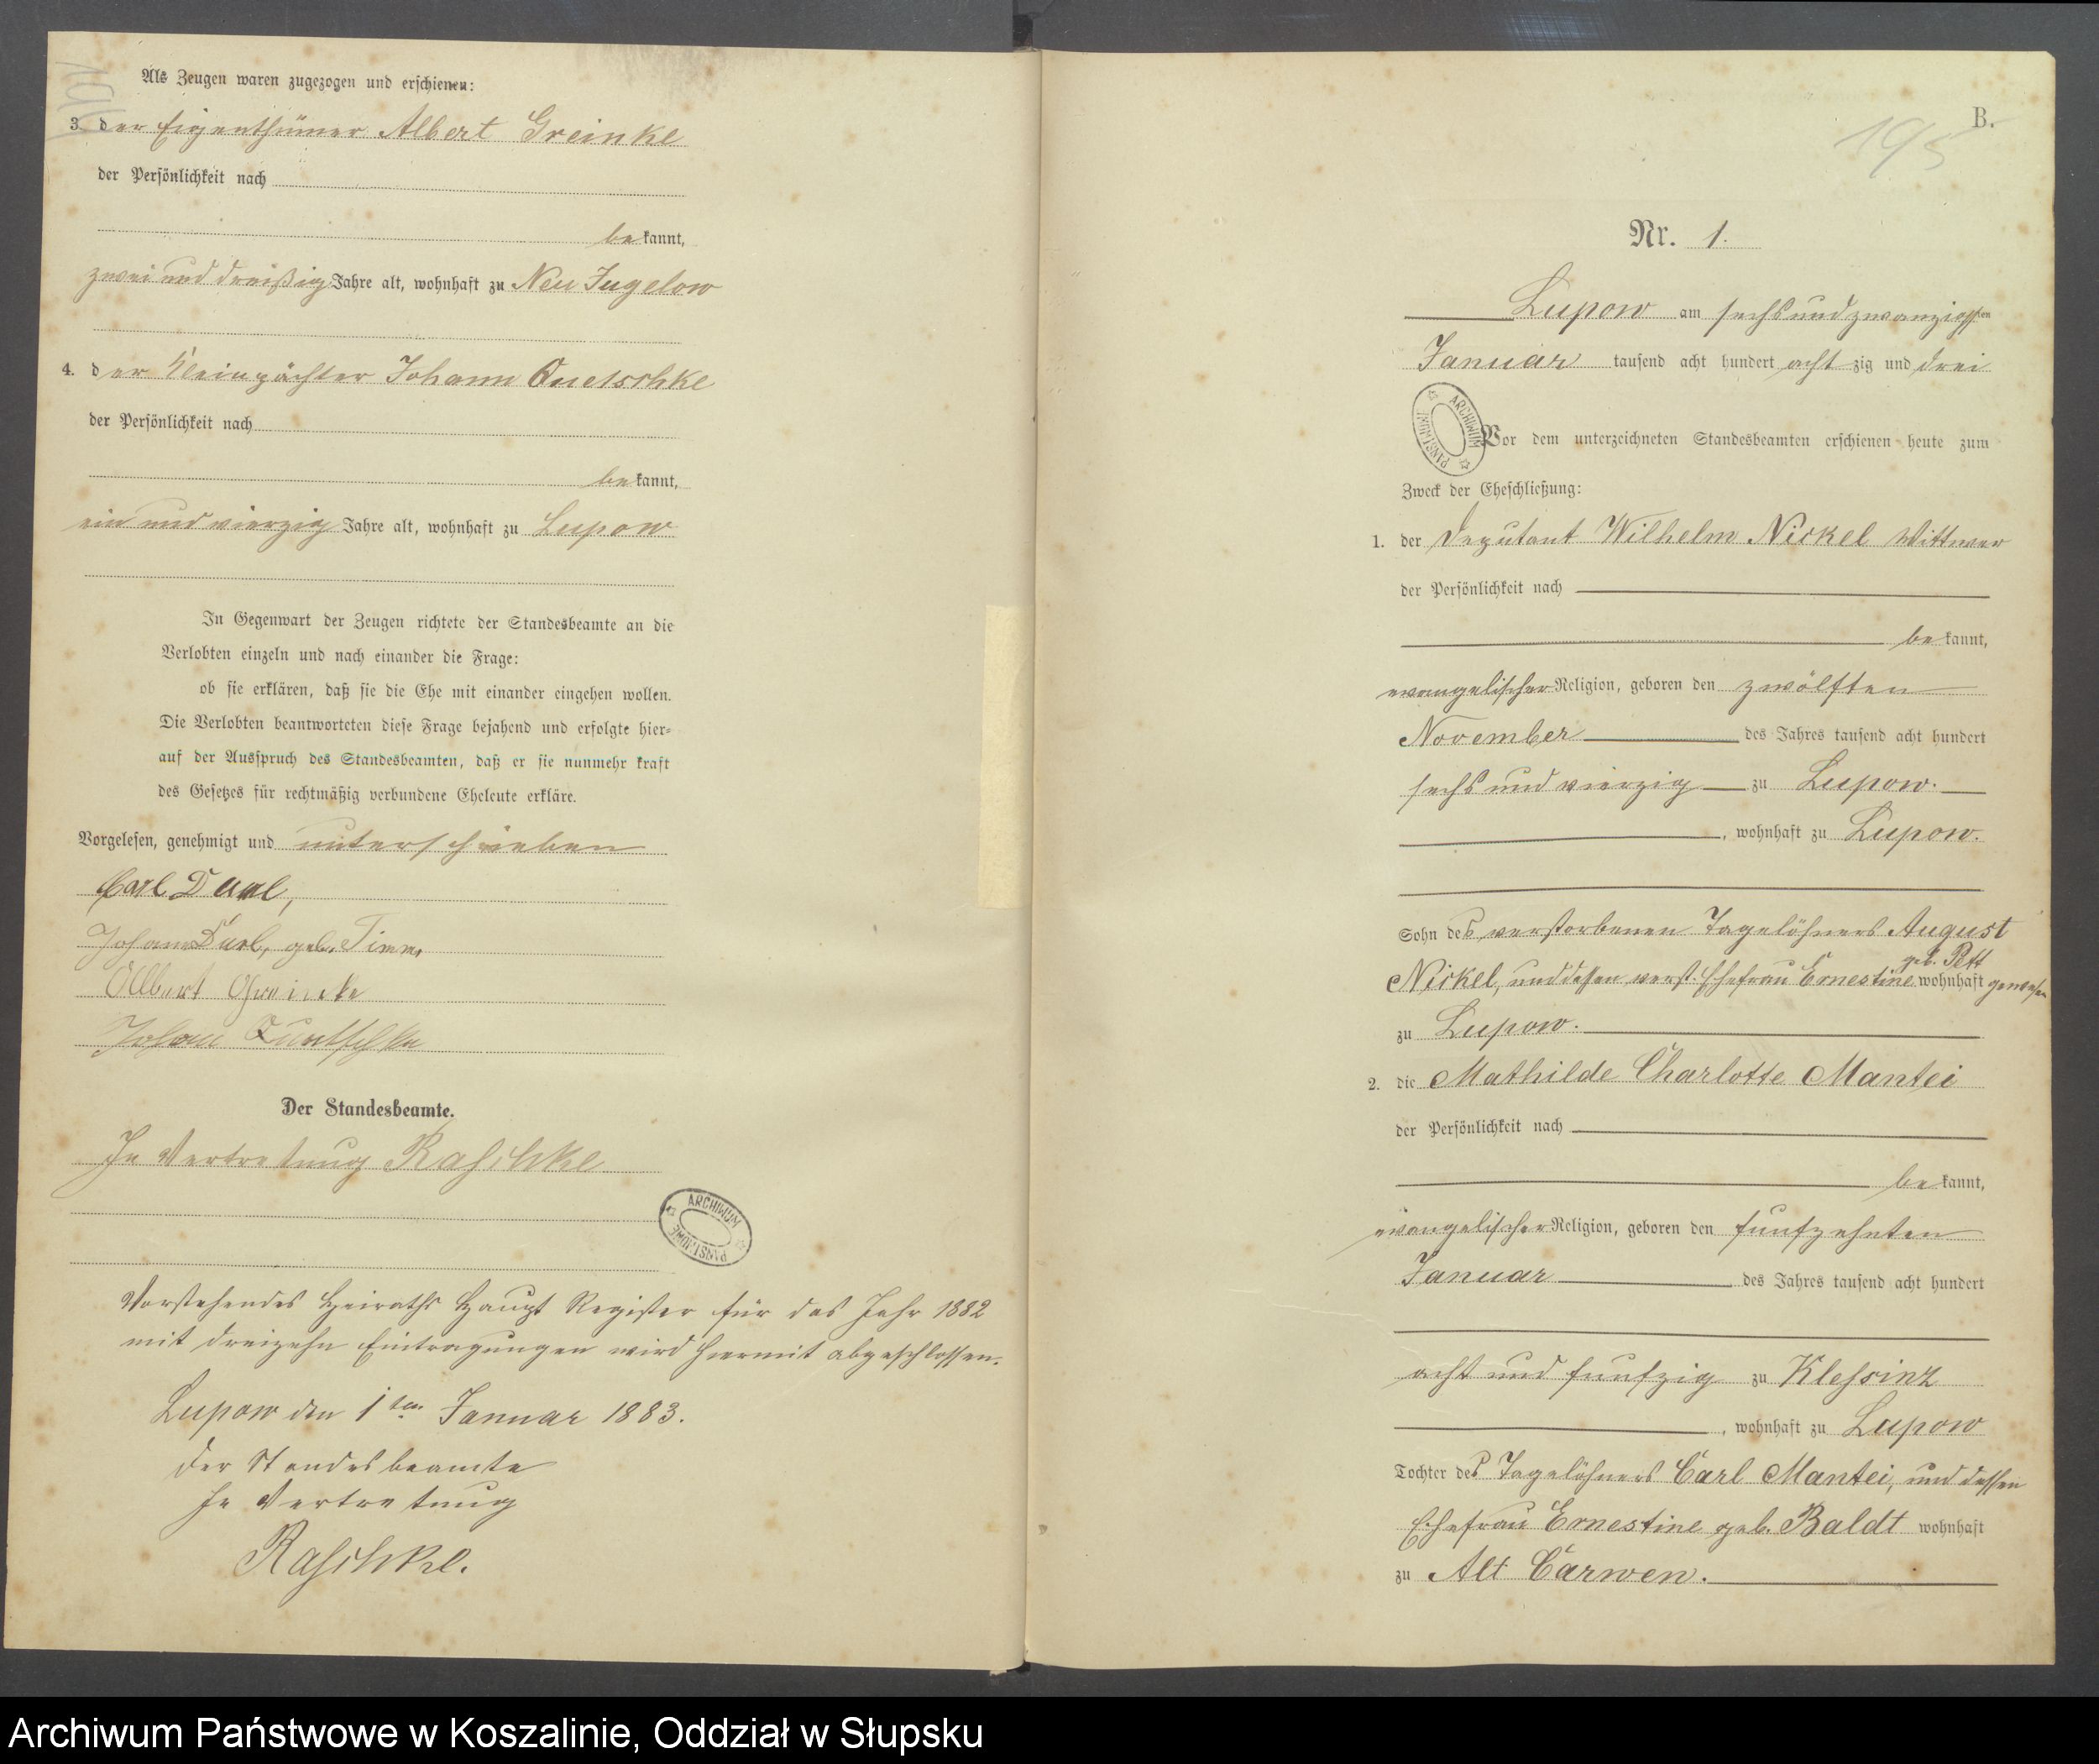 Als Zeugen waren zugezogen und erschienen:
3. der Eigenthümer Albert Greinke
der Persönlichkeit nach
bekannt,
zwei und dreißig Jahre alt, wohnhaft zu Neu Jugelow
4. der Kleinpächter Johann Quetschke
der Persönlichkeit nach
bekannt,
ein und vierzig Jahre alt, wohnhaft zu Lupow
In Gegenwart der Zeugen richtete der Standesbeamte an die
Verlobten einzeln und nach einander die Frage:
ob sie erklären, daß sie die Ehe mit einander eingehen wollen.
Die Verlobten beantworteten diese Frage bejahend und erfolgte hier-
auf der Ausspruch des Standesbeamten, daß er sie nunmehr kraft
des Gesetzes für rechtmäßig verbundene Eheleute erkläre.
Vorgelesen, genehmigt und unterschrieben
Carl
geb. Timm
Albert Greinke
Johann Quetschke
Der Standesbeamte.
In Vertretung Raschke
ARCHIWUM PAŃSTWOWE
Vorstehendes Heiraths Haupt Register für das Jahr 1882
mit dreizehn Eintragungen wird hiermit abgeschlossen.
Lupow den 1ten Januar 1883.
Der Standesbeamte
In Vertretung
Raschke.
B.
195
Nr. 1.
Lupow am sechs und zwanzigsten
Januar tausend acht hundert acht zig und drei
ARCHIWUM PAŃSTWOWE
Vor dem unterzeichneten Standesbeamten erschienen heute zum
Zweck der Eheschließung:
1. der Deputant Wilhelm Nickel Wittwer
der Persönlichkeit nach
bekannt,
evangelischer Religion, geboren den zwölften
November des Jahres tausend acht hundert
sechs und vierzig zu Lupow.
, wohnhaft zu Lupow.
Sohn des verstorbenen Tagelöhners August
geb. Pett
Nickel, und dessen verst. Ehefrau Ernestine wohnhaft gewesen
zu Lupow.
2. die Mathilde Charlotte Mantei
der Persönlichkeit nach
bekannt,
evangelischer Religion, geboren den funfzehnten
Januar des Jahres tausend acht hundert
acht und funfzig zu Klessinz
, wohnhaft zu Lupow
Tochter des Tagelöhners Carl Mantei, und dessen
Ehefrau Ernestine geb. Baldt wohnhaft
zu Alt Carwen.
Archiwum Państwowe w Koszalinie, Oddział w Słupsku